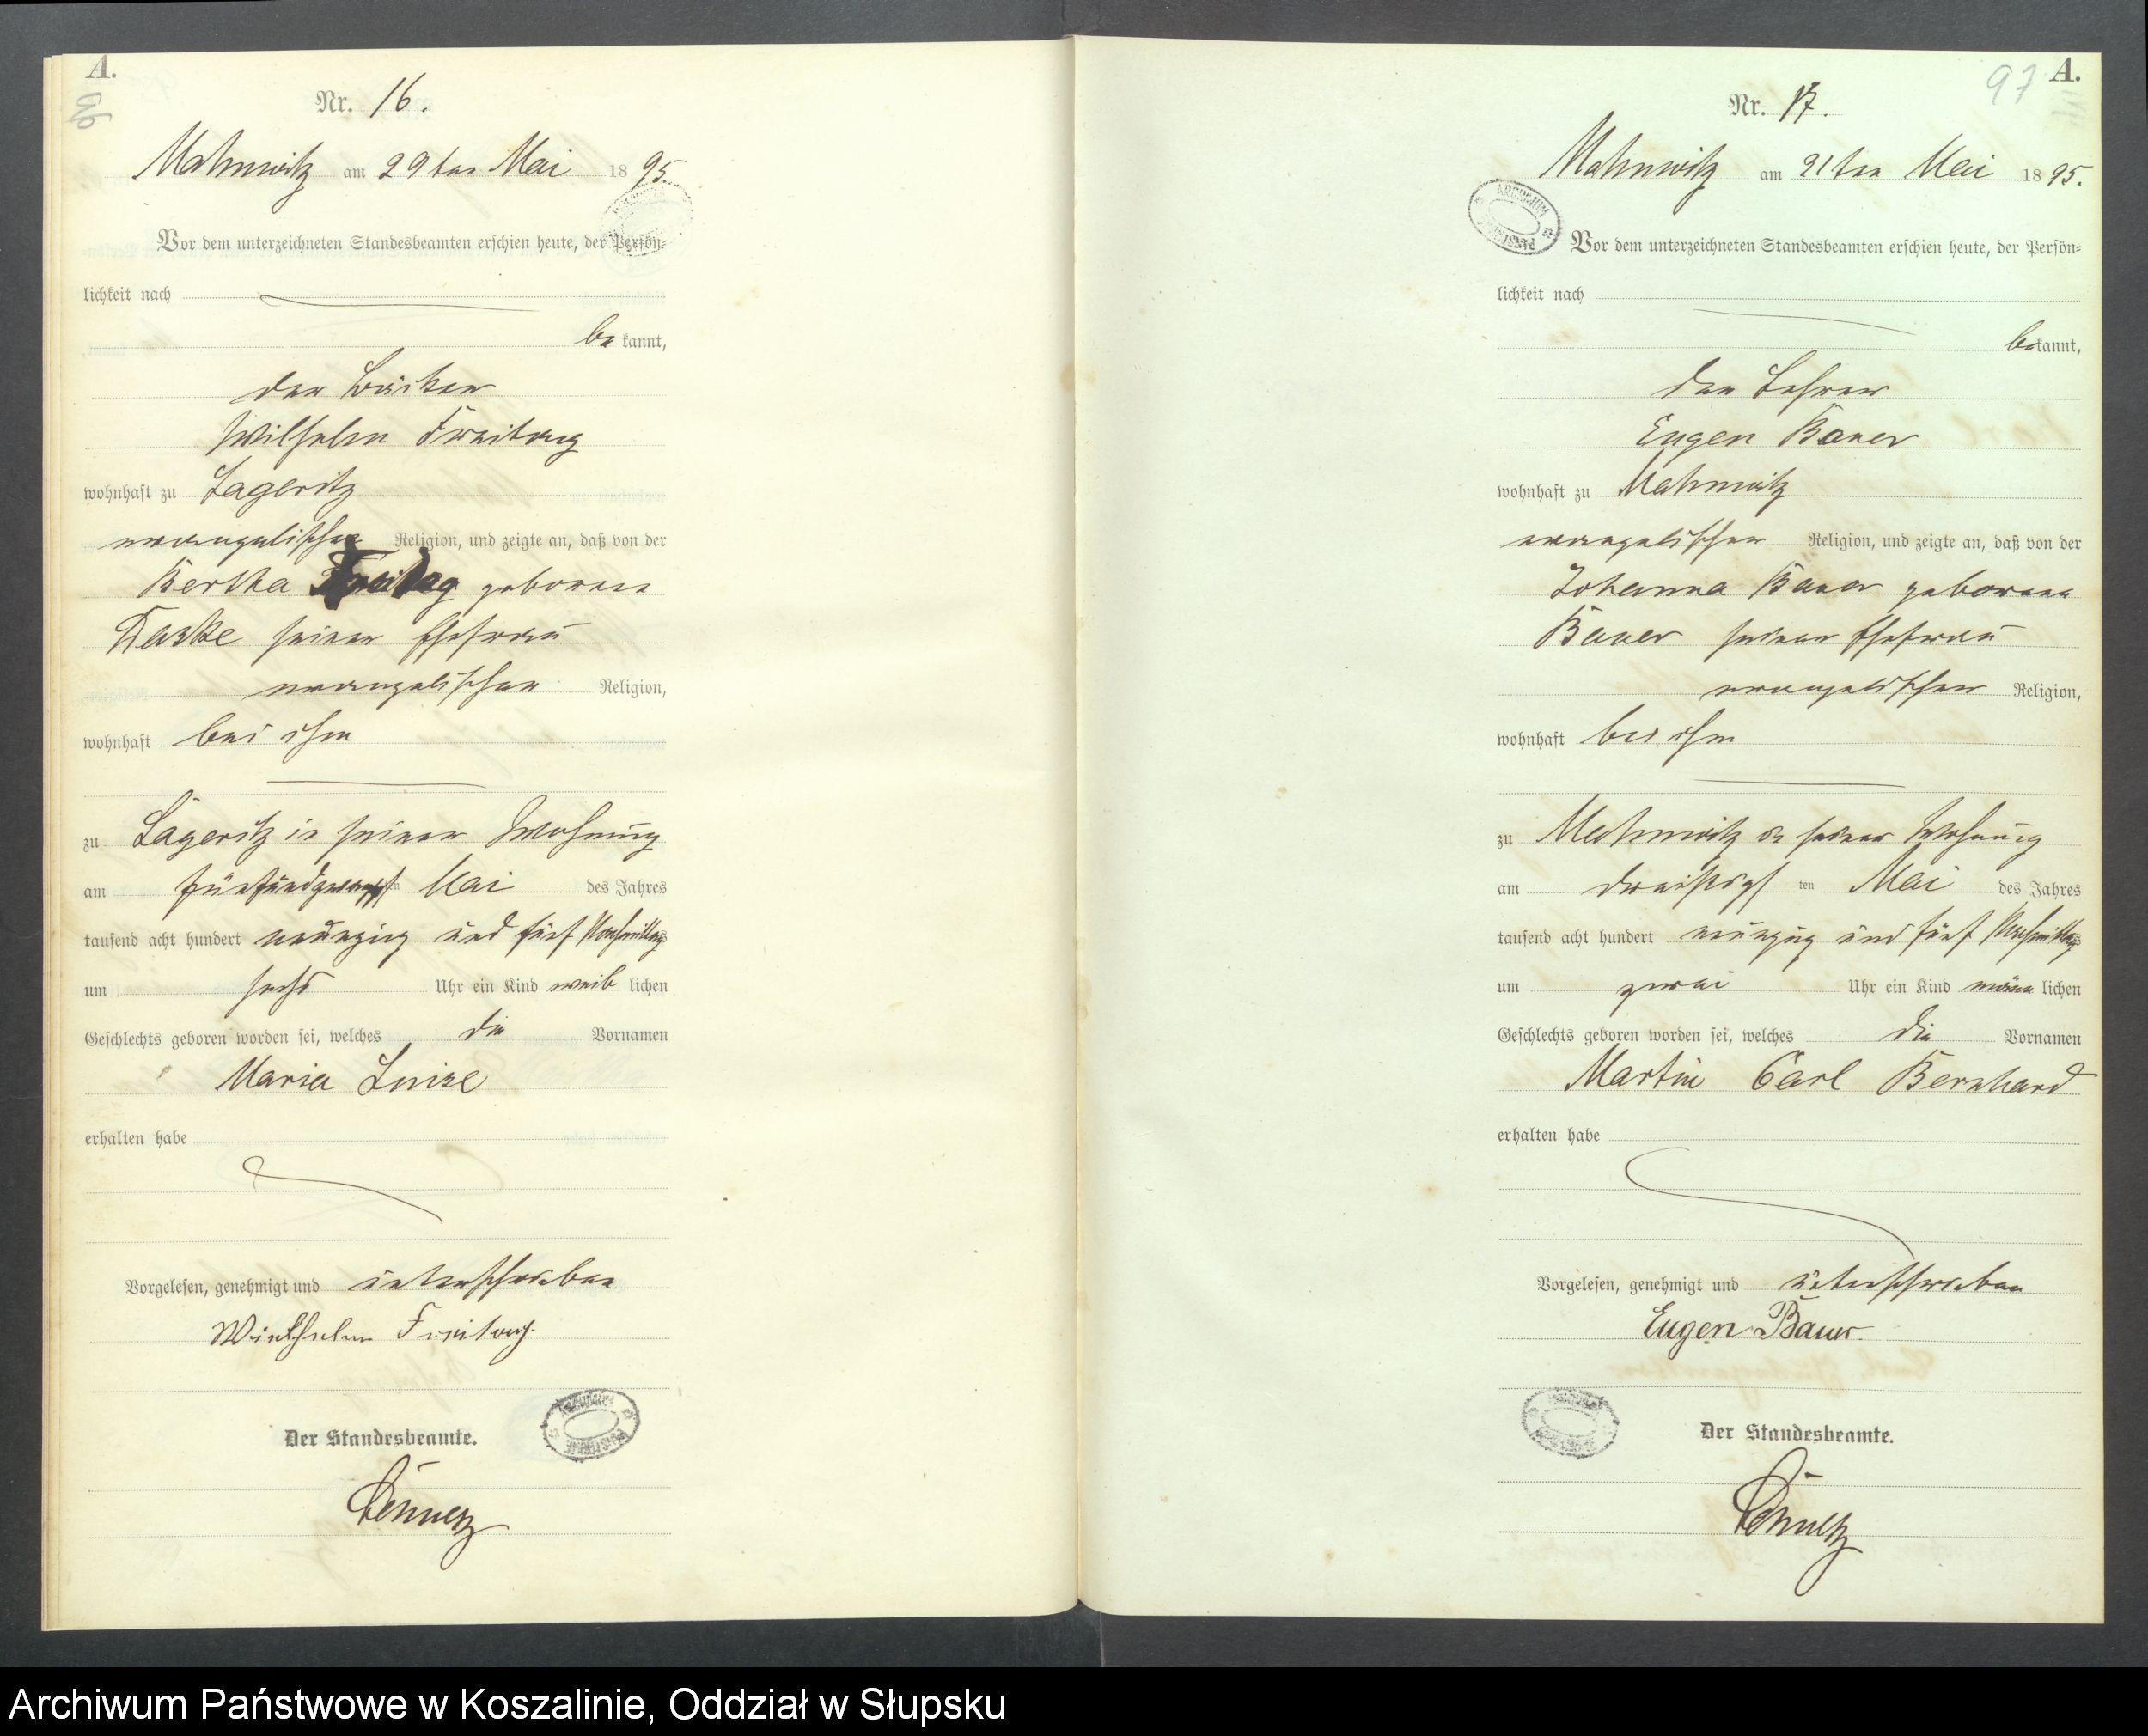 A.
96
Nr. 16.
Mahnwitz am 29ten Mai 1895.
Vor dem unterzeichneten Standesbeamten erschien heute, der Persön-
lichkeit nach
bekannt,
der
Wilhelm Freitag
wohnhaft zu Lageritz
evangelischer Religion, und zeigte an, daß von der
Bertha Freitag geborene
Taske seiner Ehefrau
evangelischer Religion,
wohnhaft bei ihm
zu Lageritz in seiner Wohnung
am fünfundzwanzigsten Mai des Jahres
tausend acht hundert neunzig und fünf Nachmittags
um sechs Uhr ein Kind weiblichen
Geschlechts geboren worden sei, welches die Vornamen
Maria Luise
erhalten habe
Vorgelesen, genehmigt und unterschrieben
Wielhelm Freitag.
Der Standesbeamte.
A.
97
Nr. 17.
Mahnwitz am 31ten Mai 1895.
Vor dem unterzeichneten Standesbeamten erschien heute, der Persön-
lichkeit nach
bekannt,
der Lehrer
Eugen Bauer
wohnhaft zu Mahnwitz
evangelischer Religion, und zeigte an, daß von der
Johanna Bauer geborene
Bauer seiner Ehefrau
evangelischer Religion,
wohnhaft bei ihm
zu Mahnwitz in seiner Wohnung
am dreißigsten Mai des Jahres
tausend acht hundert neunzig und fünf Nachmittags
um zwei Uhr ein Kind männlichen
Geschlechts geboren worden sei, welches die Vornamen
Martin Carl Bernhard
erhalten habe
Vorgelesen, genehmigt und unterschrieben
Eugen Bauer.
Der Standesbeamte.
Archiwum Państwowe w Koszalinie, Oddział w Słupsku